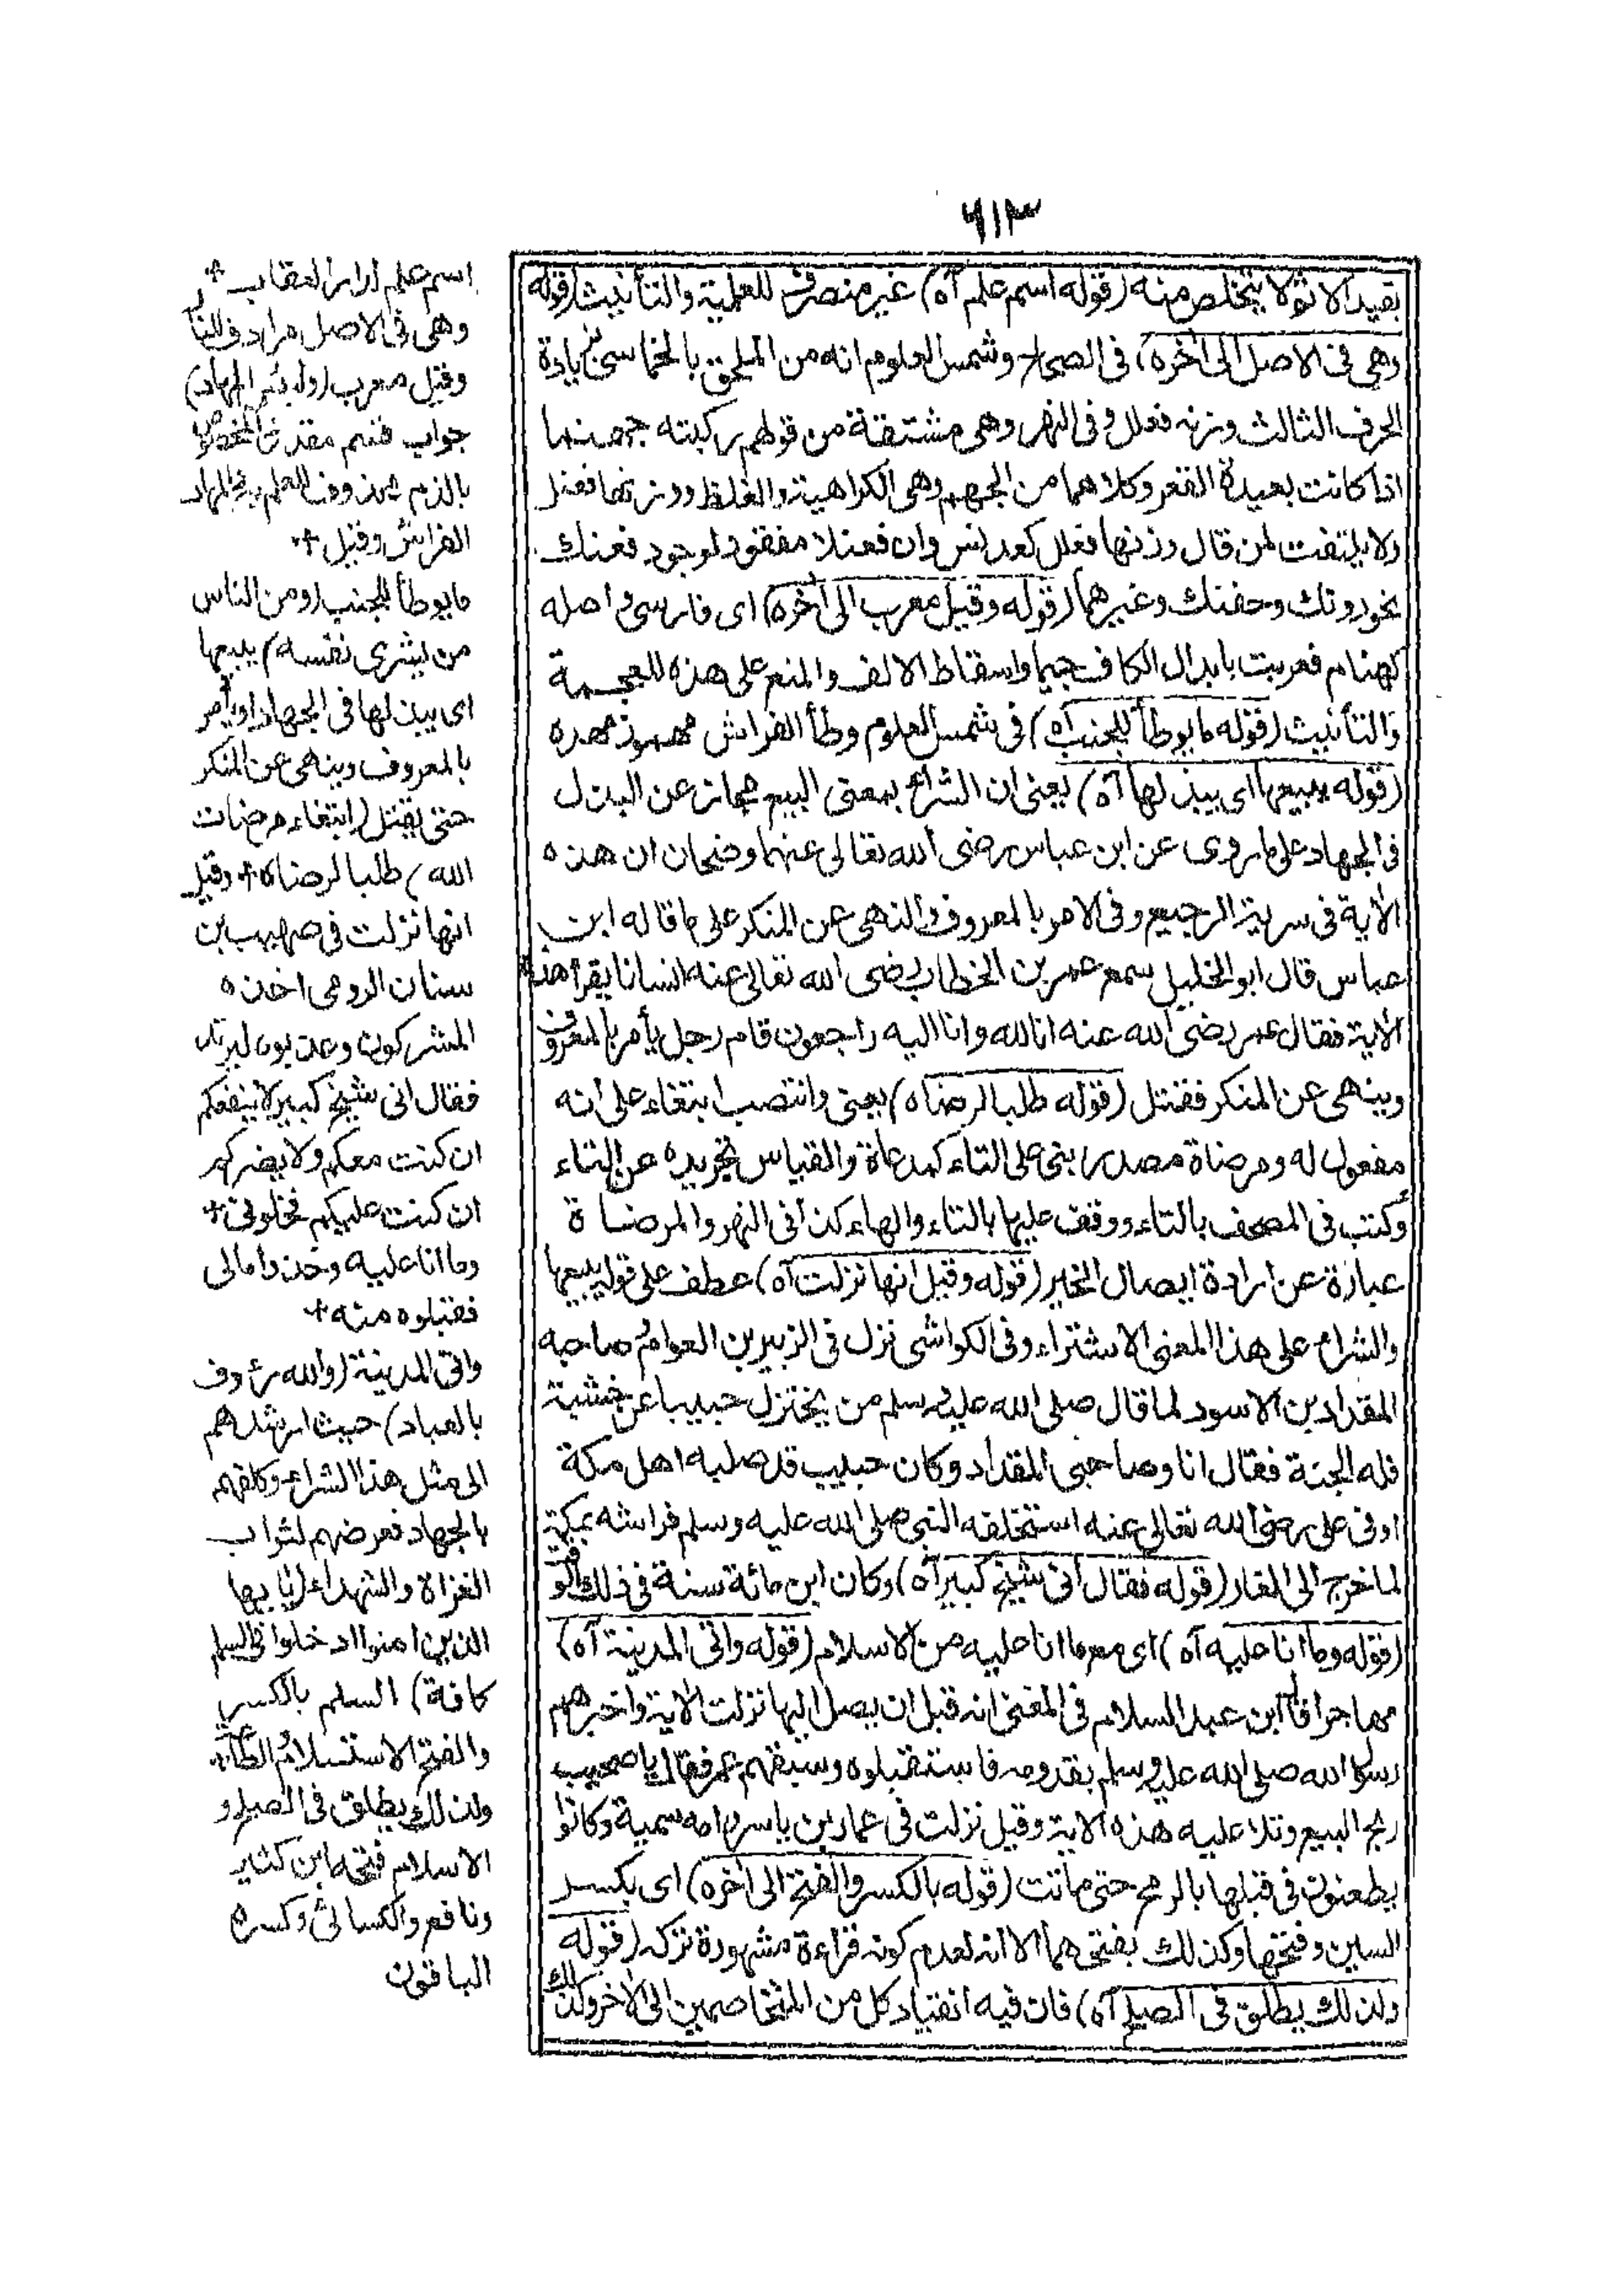 ٦١٣
بقيد الاثم لا يتخلص منه (قوله اسم علم آه) غير منصرف للعلمية والتأنيث (قوله
وهي في الاصل الى آخره) في الصحاح وشمس العلوم انه من الملحق بالخماسي بزيادة
الحرف الثالث وزنه فعلل وفي النهر وهي مشتقة من قولهم ركية جهنام
اذا كانت بعيدة القعر وكلاهما من الجهم وهي الكراهية والغلظ ووزنها فعنل
ولا يلتفت لمن قال وزنها فعلل كعدبس وان فعنلا مفقود لوجود فعنل
نحو دونك وحفنك وغيرهما (قوله وقيل معرب الى آخره) اى فارسي واصله
كهنام فعربت بابدال الكاف جيما واسقاط الالف والمنع على هذه للعجمة
والتأنيث (قوله ما يوطأ للجنب آه) في شمس العلوم وطأ الفراش مهموز مهده
(قوله يبيعها اى يبذلها آه) يعنى ان الشراء بمعنى البيع مجاز عن البذل
في الجهاد على ما روى عن ابن عباس رضى الله تعالى عنهما وضحاك ان هذه
الآية في سرية الرجيع وفي الامر بالمعروف والنهى عن المنكر على ما قاله ابن
عباس قال ابو الخليل سمع عمر بن الخطاب رضى الله تعالى عنه انسانا يقرأ هذه
الآية فقال عمر رضى الله عنه انا لله وانا اليه راجعون قام رجل يأمر بالمعروف
وينهى عن المنكر فقتل (قوله طلبا لرضاه) يعنى وانتصب ابتغاء على انه
مفعول له ومرضاة مصدر بنى على التاء كمدعاة والقياس تجريده عن التاء
وكتب في المصحف بالتاء ووقف عليها بالتاء والهاء كذا في النهر والمرضاة
عبارة عن ارادة ايصال الخير (قوله وقيل انها نزلت آه) عطف على قوله يبيعها
والشراء على هذا المعنى الاشتراء وفي الكواشى نزل في الزبير بن العوام وصاحبه
المقداد بن الاسود لما قال صلى الله عليه وسلم من يختزل حبيبا عن خشبته
فله الجنة فقال انا وصاحبى المقداد وكان حبيب قد صلبه اهل مكة
او في على رضى الله تعالى عنه استخلفه النبى صلى الله عليه وسلم فراشه بمكة
لما خرج الى الغار (قوله فقال انى شيخ كبير آه) وكان ابن مائة سنة في ذلك الوقت
(قوله وما انا عليه آه) اى مع ما انا عليه من الاسلام (قوله واتى المدينة آه)
مهاجرا قال ابن عبد السلام في المغنى انه قبل ان يصل اليها نزلت الآية واخبرهم
رسول الله صلى الله عليه وسلم بقدومه فاستقبلوه وسبقهم عمر فقال يا صهيب
ربح البيع وتلا عليه هذه الآية وقيل نزلت في عمار بن ياسر وامه سمية وكانوا
يطعنون في قبلها بالرمح حتى ماتت (قوله بالكسر والفتح الى آخره) اى بكسر
السين وفتحها وكذلك بفتحهما الا انه لعدم كونه قراءة مشهورة تركه (قوله
ولذلك يطلق في الصلح آه) فان فيه انقياد كل من المتخاصمين الى الآخر وكذلك
اسم علم لدار العقاب +
وهي في الاصل مرادف للنار
وقيل معرب (ولبئس المهاد)
جواب قسم مقدر والمخصوص
بالذم محذوف للعلم به والمهاد
الفراش وقيل +
ما يوطأ للجنب (ومن الناس
من يشرى نفسه) يبيعها
اى يبذلها في الجهاد او يأمر
بالمعروف وينهى عن المنكر
حتى يقتل (ابتغاء مرضات
الله) طلبا لرضاه + وقيل
انها نزلت في صهيب بن
سنان الرومى اخذه
المشركون وعذبوه ليرتد
فقال انى شيخ كبير لا ينفعكم
ان كنت معكم ولا يضركم
ان كنت عليكم فخلونى +
وما انا عليه وخذوا مالى
فقبلوه منه +
واتى المدينة (والله رؤوف
بالعباد) حيث ارشدهم
الى مثل هذا الشراء وكلفهم
بالجهاد فعرضهم لثواب
الغزاة والشهداء (يا ايها
الذين امنوا ادخلوا في السلم
كافة) السلم بالكسر
والفتح الاستسلام والطاعة +
ولذلك يطلق في الصلح و
الاسلام فتحه ابن كثير
ونافع والكسائي وكسره
الباقون